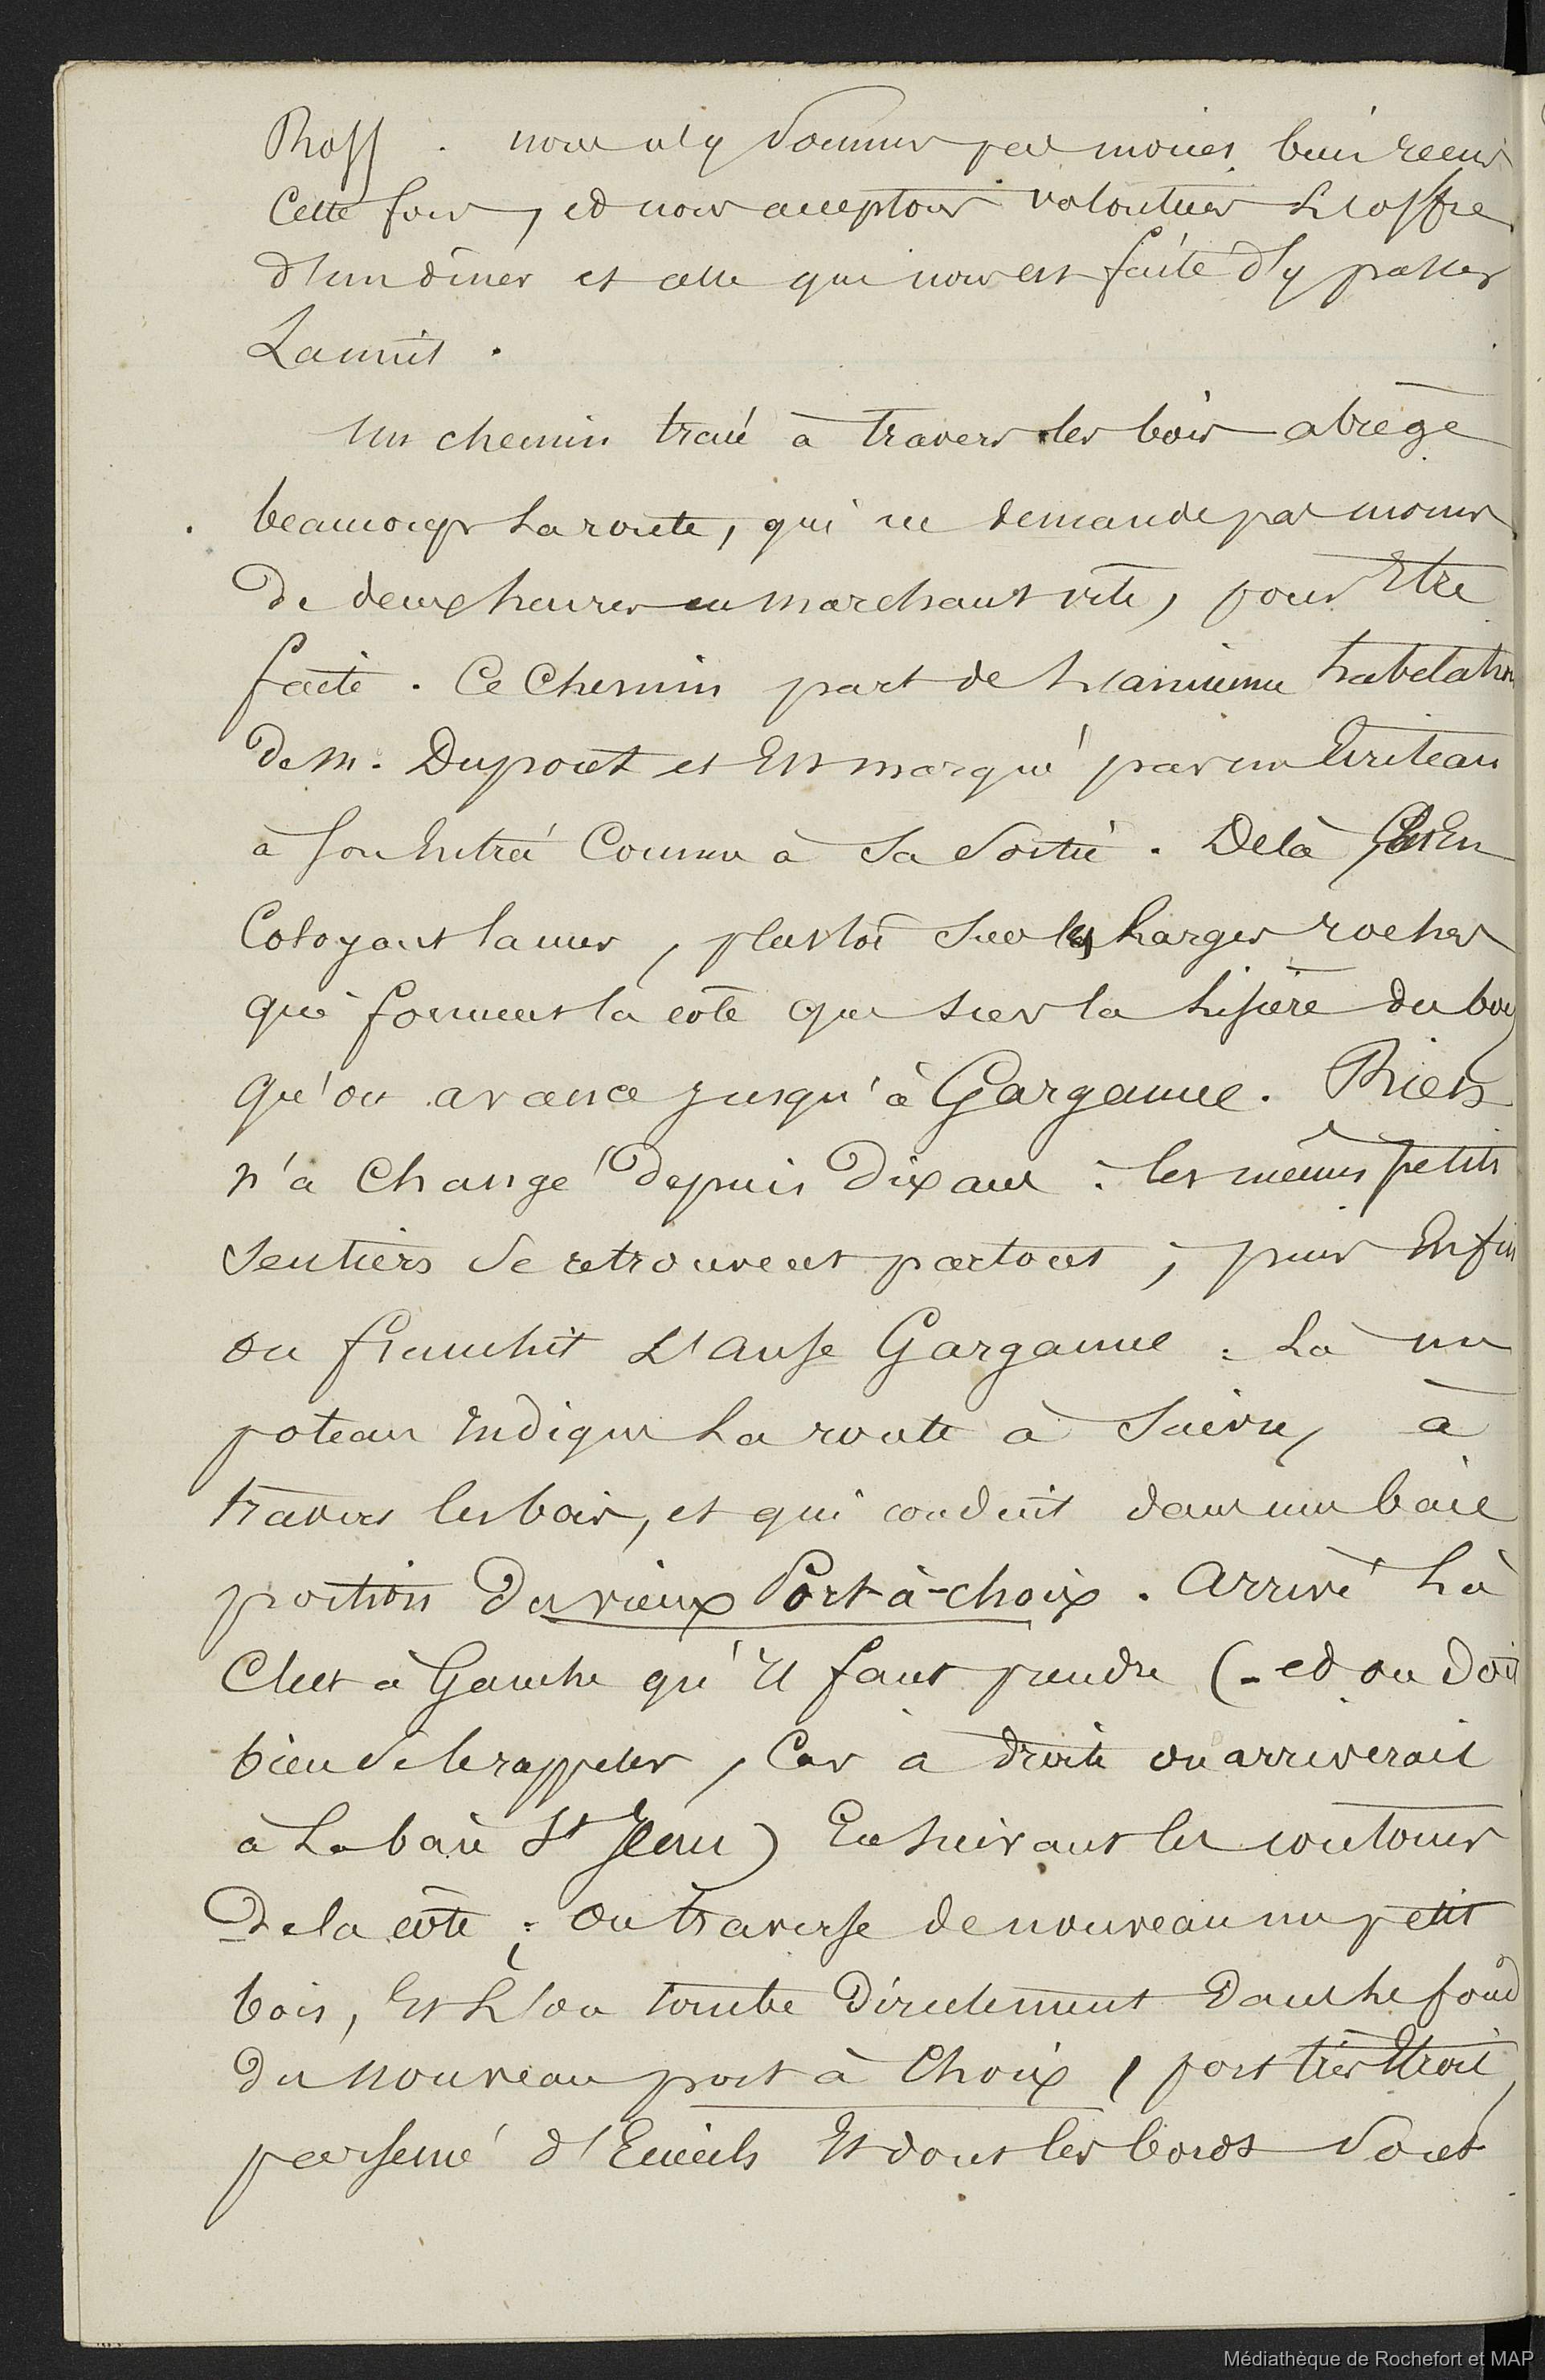 Ross . nous n'y sommes pas moins bien reçus
Cette fois, et nous acceptons volontiers L'offre
d'un dîner et celle qui nous est faite d'y passer
La nuit .
Un chemin tracé à travers les bois abrège
beaucoup La route, qui ne demande pas moins
De deux heures en marchant vite, pour Etre
faite . Ce Chemin part de L'ancienne habitation
De M. Dupont et Est marqué par un Ecriteau
à son Entrée Comme à Sa Sortie . De là C'est En
Cotoyant la mer, plustôt sur les Larges roches
qui forment la côte que sur la Lisière du bois
qu'on avance jusqu'à Gargamelle. Rien
n'a Changé Depuis Dix ans : les mêmes petits
Sentiers Se retrouvent partout ; puis Enfin
on franchit L'anse Gargamelle : Là un
poteau Indique La route à Suivre, à
travers les bois, et qui conduit dans une baie
portion Du vieux Port-à-choix . Arrivé Là
C'est à Gauche qu'il faut prendre (- et on Doit
bien se le rappeler, Car à droite on arriverait
à La baie St Jean) En Suivant les contours
De la côte ; On traverse de nouveau un petit
bois, Et L'on tombe Directement Dans Le fond
Du nouveau port à Choix, port très Etroit,
parsemé d'Ecueils Et dont les bords Sont
Médiathèque de Rochefort et MAP